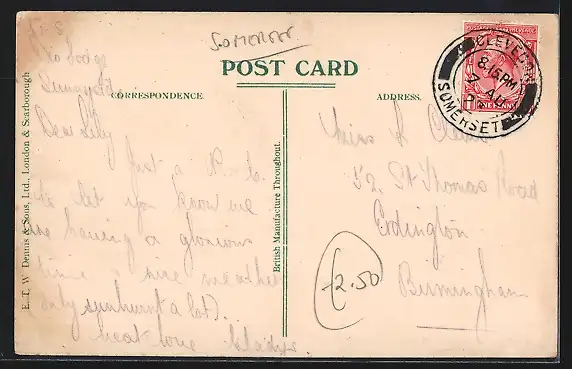 SOMERSET
POST CARD
CORRESPONDENCE.
ADDRESS.
E. T. W. Dennis & Sons, Ltd., London & Scarborough
British Manufacture Throughout.
Lodge
Dear Lily
Just a P.C.
to let you know we
are having a glorious
time & nice weather
only sunburnt a lot).
heat love Gladys.
Miss L
52, St Thomas Road
Erdington
Birmingham
2.50
CLEVEDON
8.15 PM
SOMERSET
ONE PENNY